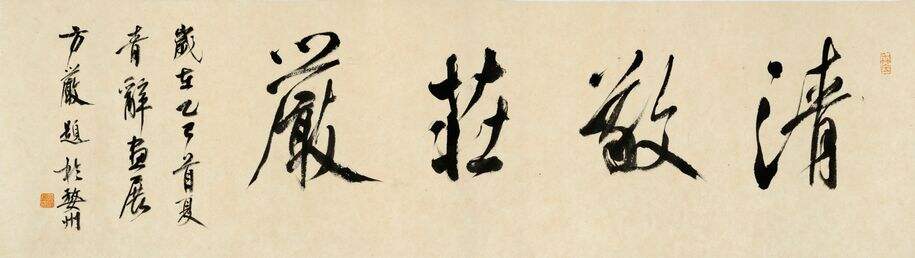 清敬莊嚴
歲在乙巳首夏
青辭畫展
方嚴題於婺州